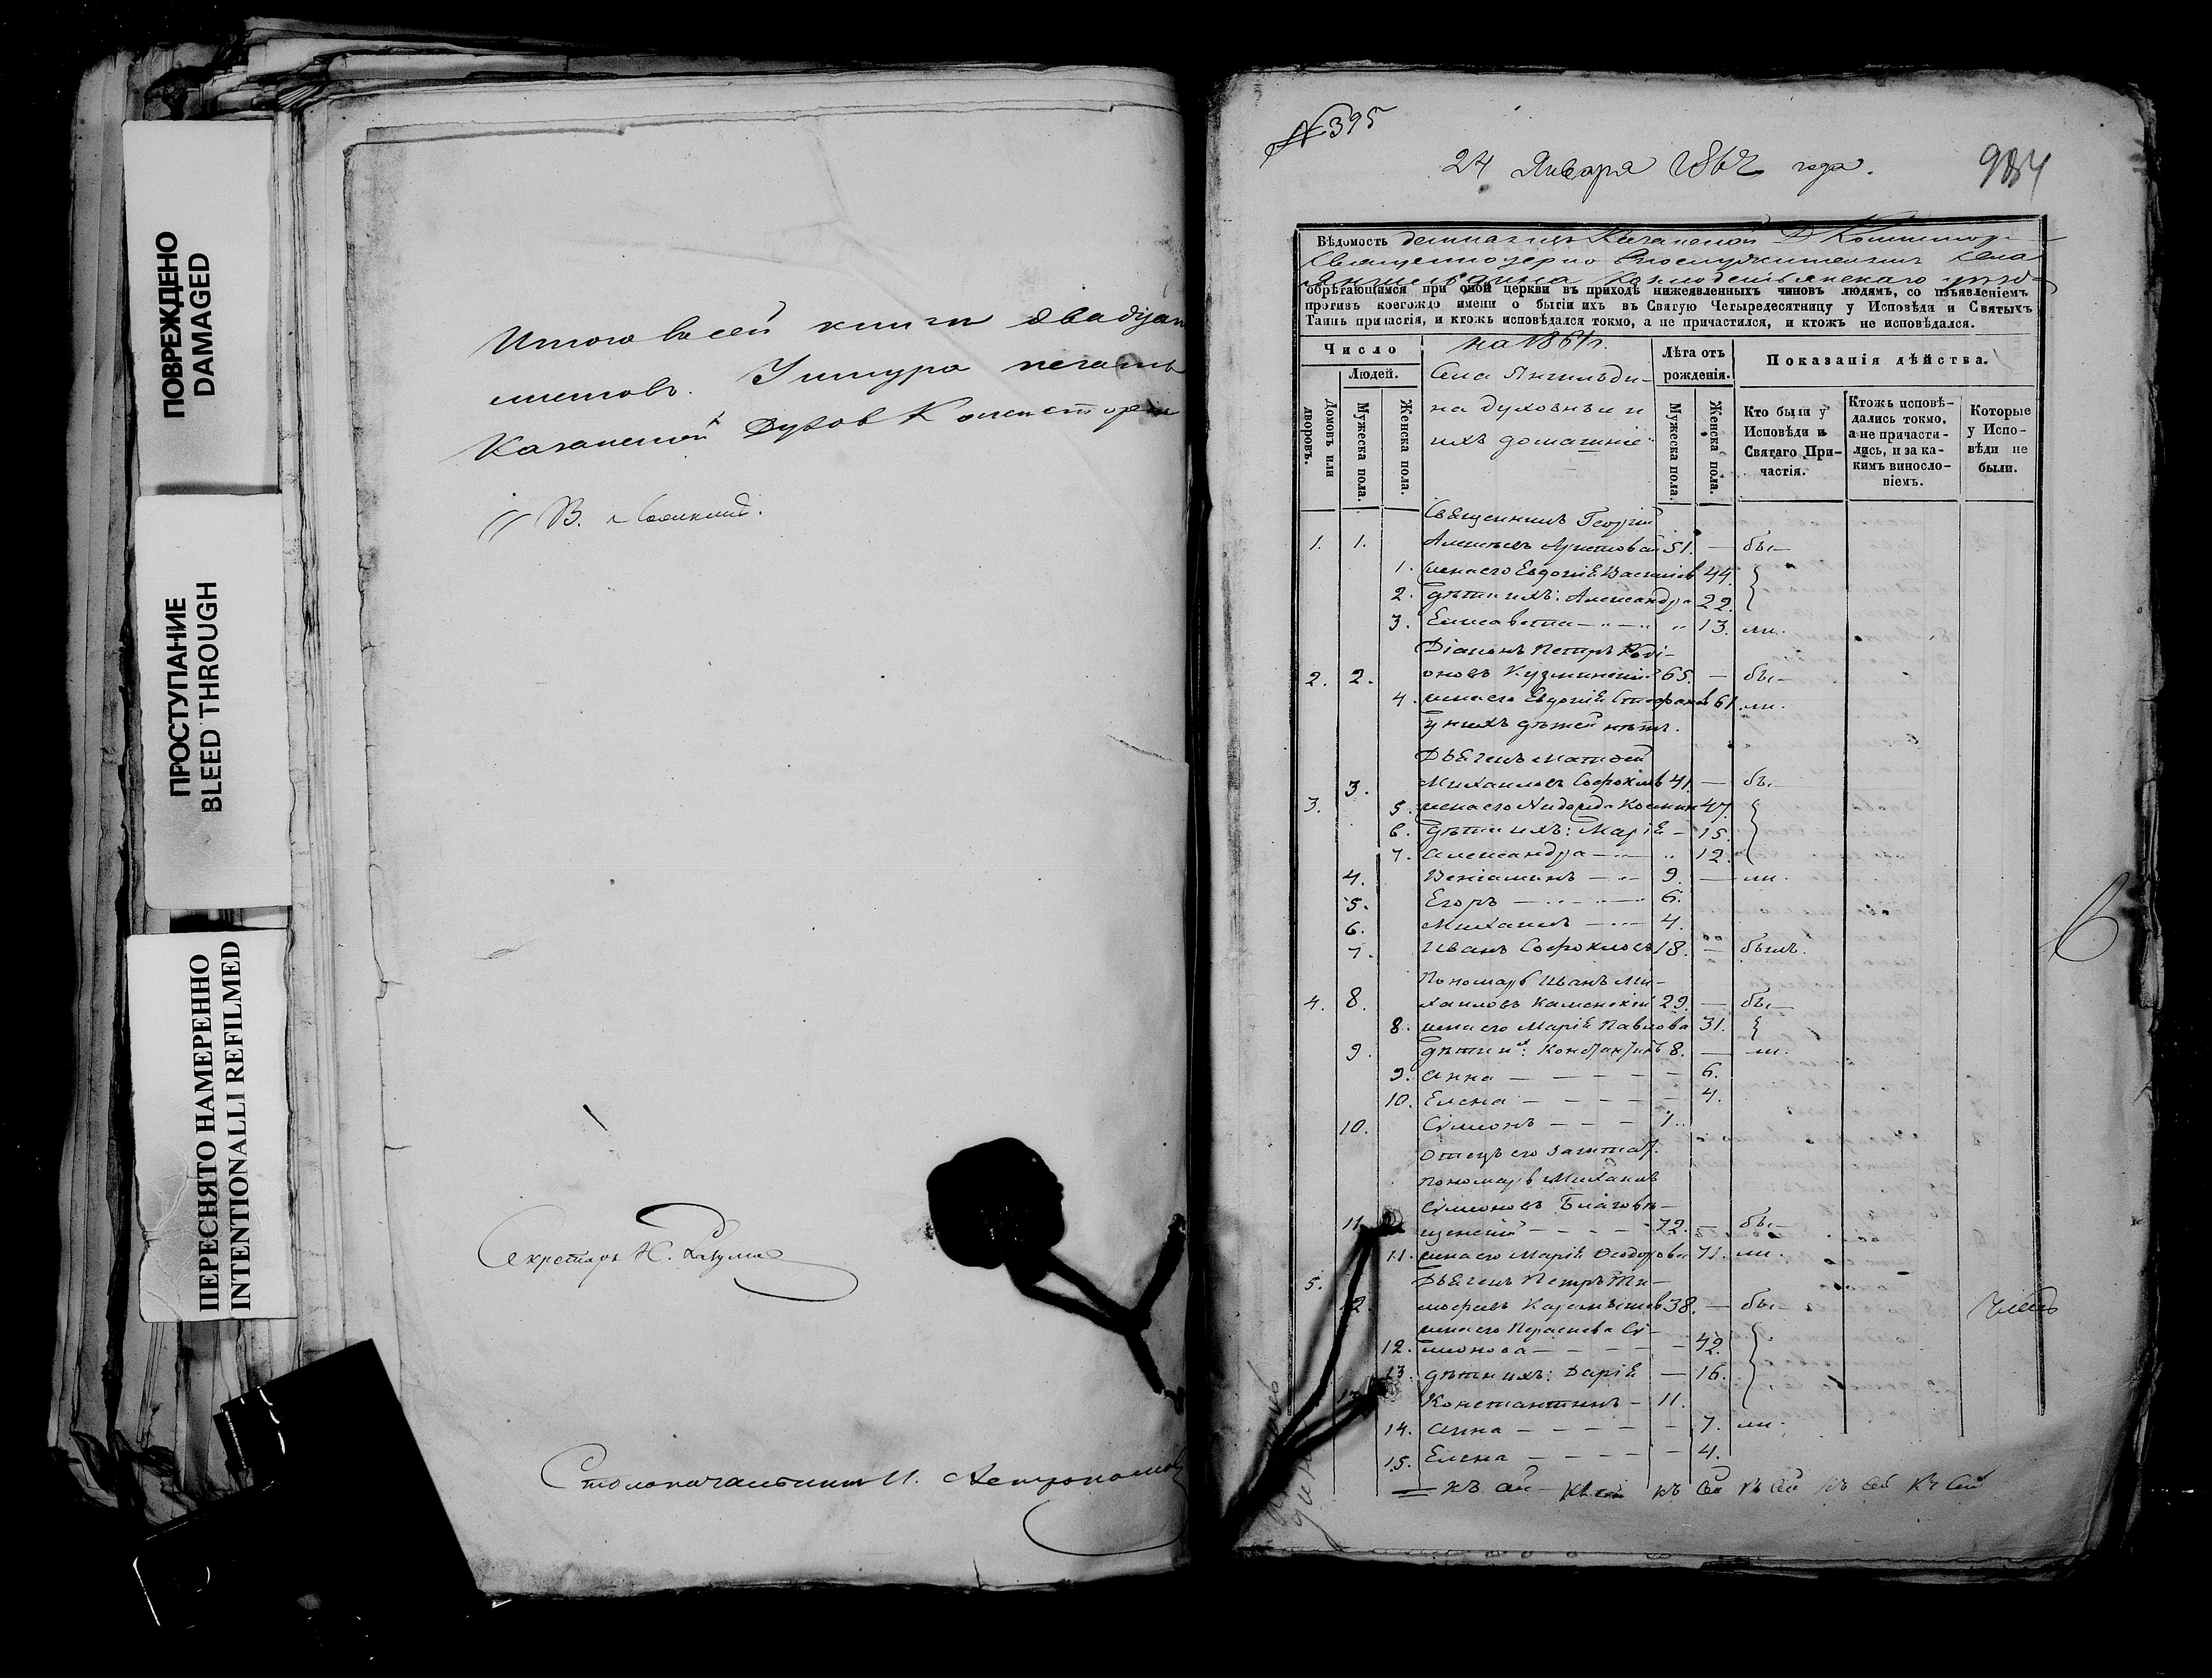 ПОВРЕЖДЕНО
DAMAGED
ПРОСТУПАНИЕ
BLEED THROUGH
ПЕРЕСНЯТО НАМЕРЕННО
INTENTIONALLI REFILMED
Итого в сей книги двадцать
листовъ. У шнура печать
Казанской Духов Консисторіи
Секретарь Н.
Столоначальникъ И.
№ 395
24 Января 186 года.
984
Вѣдомость Казанской Д Консистор
Священно церковнослужителями села
Козмодемьянскаго уѣзда
обрѣтающимся при оной церкви въ приходѣ нижеявленныхъ чиновъ людямъ, со изъявленіемъ
противъ коегождо имени о бытіи ихъ въ Святую Четыредесятницу у Исповѣди и Святыхъ
Таинъ причастія, и ктожъ исповѣдался токмо, а не причастился, и ктожъ не исповѣдался.
Число
Людей.
Домовъ или дворовъ.
Мужеска пола.
Женска пола.
на 1861 г.
Села Янгильди-
на духовные и
ихъ домашніе
Лѣта отъ рожденія.
Мужеска пола.
Женска пола.
Показанія дѣйства.
Кто были у Исповѣди и Святаго Причастія.
Ктожъ исповѣдались токмо, а не причастились, и за какимъ винословіемъ.
Которые у Исповѣди не были.
Священникъ Георгій
1. 1. Алексѣевъ 51. — бы—
1. жена его Евдокія Васильев 44.
2. дѣти ихъ: Александра 22.
3. Елисавета — 13. ли.
Діаконъ Петръ Роді-
2. 2. оновъ Кузминскій 65. — бы—
4. жена его Евдокія Стефанов 61. ли.
у нихъ дѣтей нѣтъ.
Дьячекъ Матѳей
3. Михаиловъ Софокловъ 41. — бы—
3. 5. жена его Косьмин 47.
6. дѣти ихъ: Марія — 15.
7. Александра — 12.
4. Веніаминъ — 9. — ли.
5. Егоръ — 6.
6. Михаилъ — 4.
7. Иванъ Софокловъ 18. — былъ.
Пономарь Иванъ Ми-
4. 8. хаиловъ Каменскій 29. — бы—
8. жена его Марія Павлова 31.
9. дѣти их: Константинъ 8. — ли.
9. Анна — — — — 6.
10. Елена — — — — 4.
10. Сѵмеонъ — — — 1.
Отецъ его заштат.
пономарь Михаилъ
Сѵмеоновъ Благовѣ-
11. щенскій — — — 72. — бы—
11. жена его Марія Ѳеодорова 71. ли.
5. Дьячекъ Петръ Ти-
12. моѳеевъ 38. — бы—
жена его Параскева Сѵ-
12. меонова — — — — 42.
13. дѣти ихъ: Дарія — 16.
13. Константинъ — 11.
14. Анна — — — — 7. ли.
15. Елена — — — — 4.